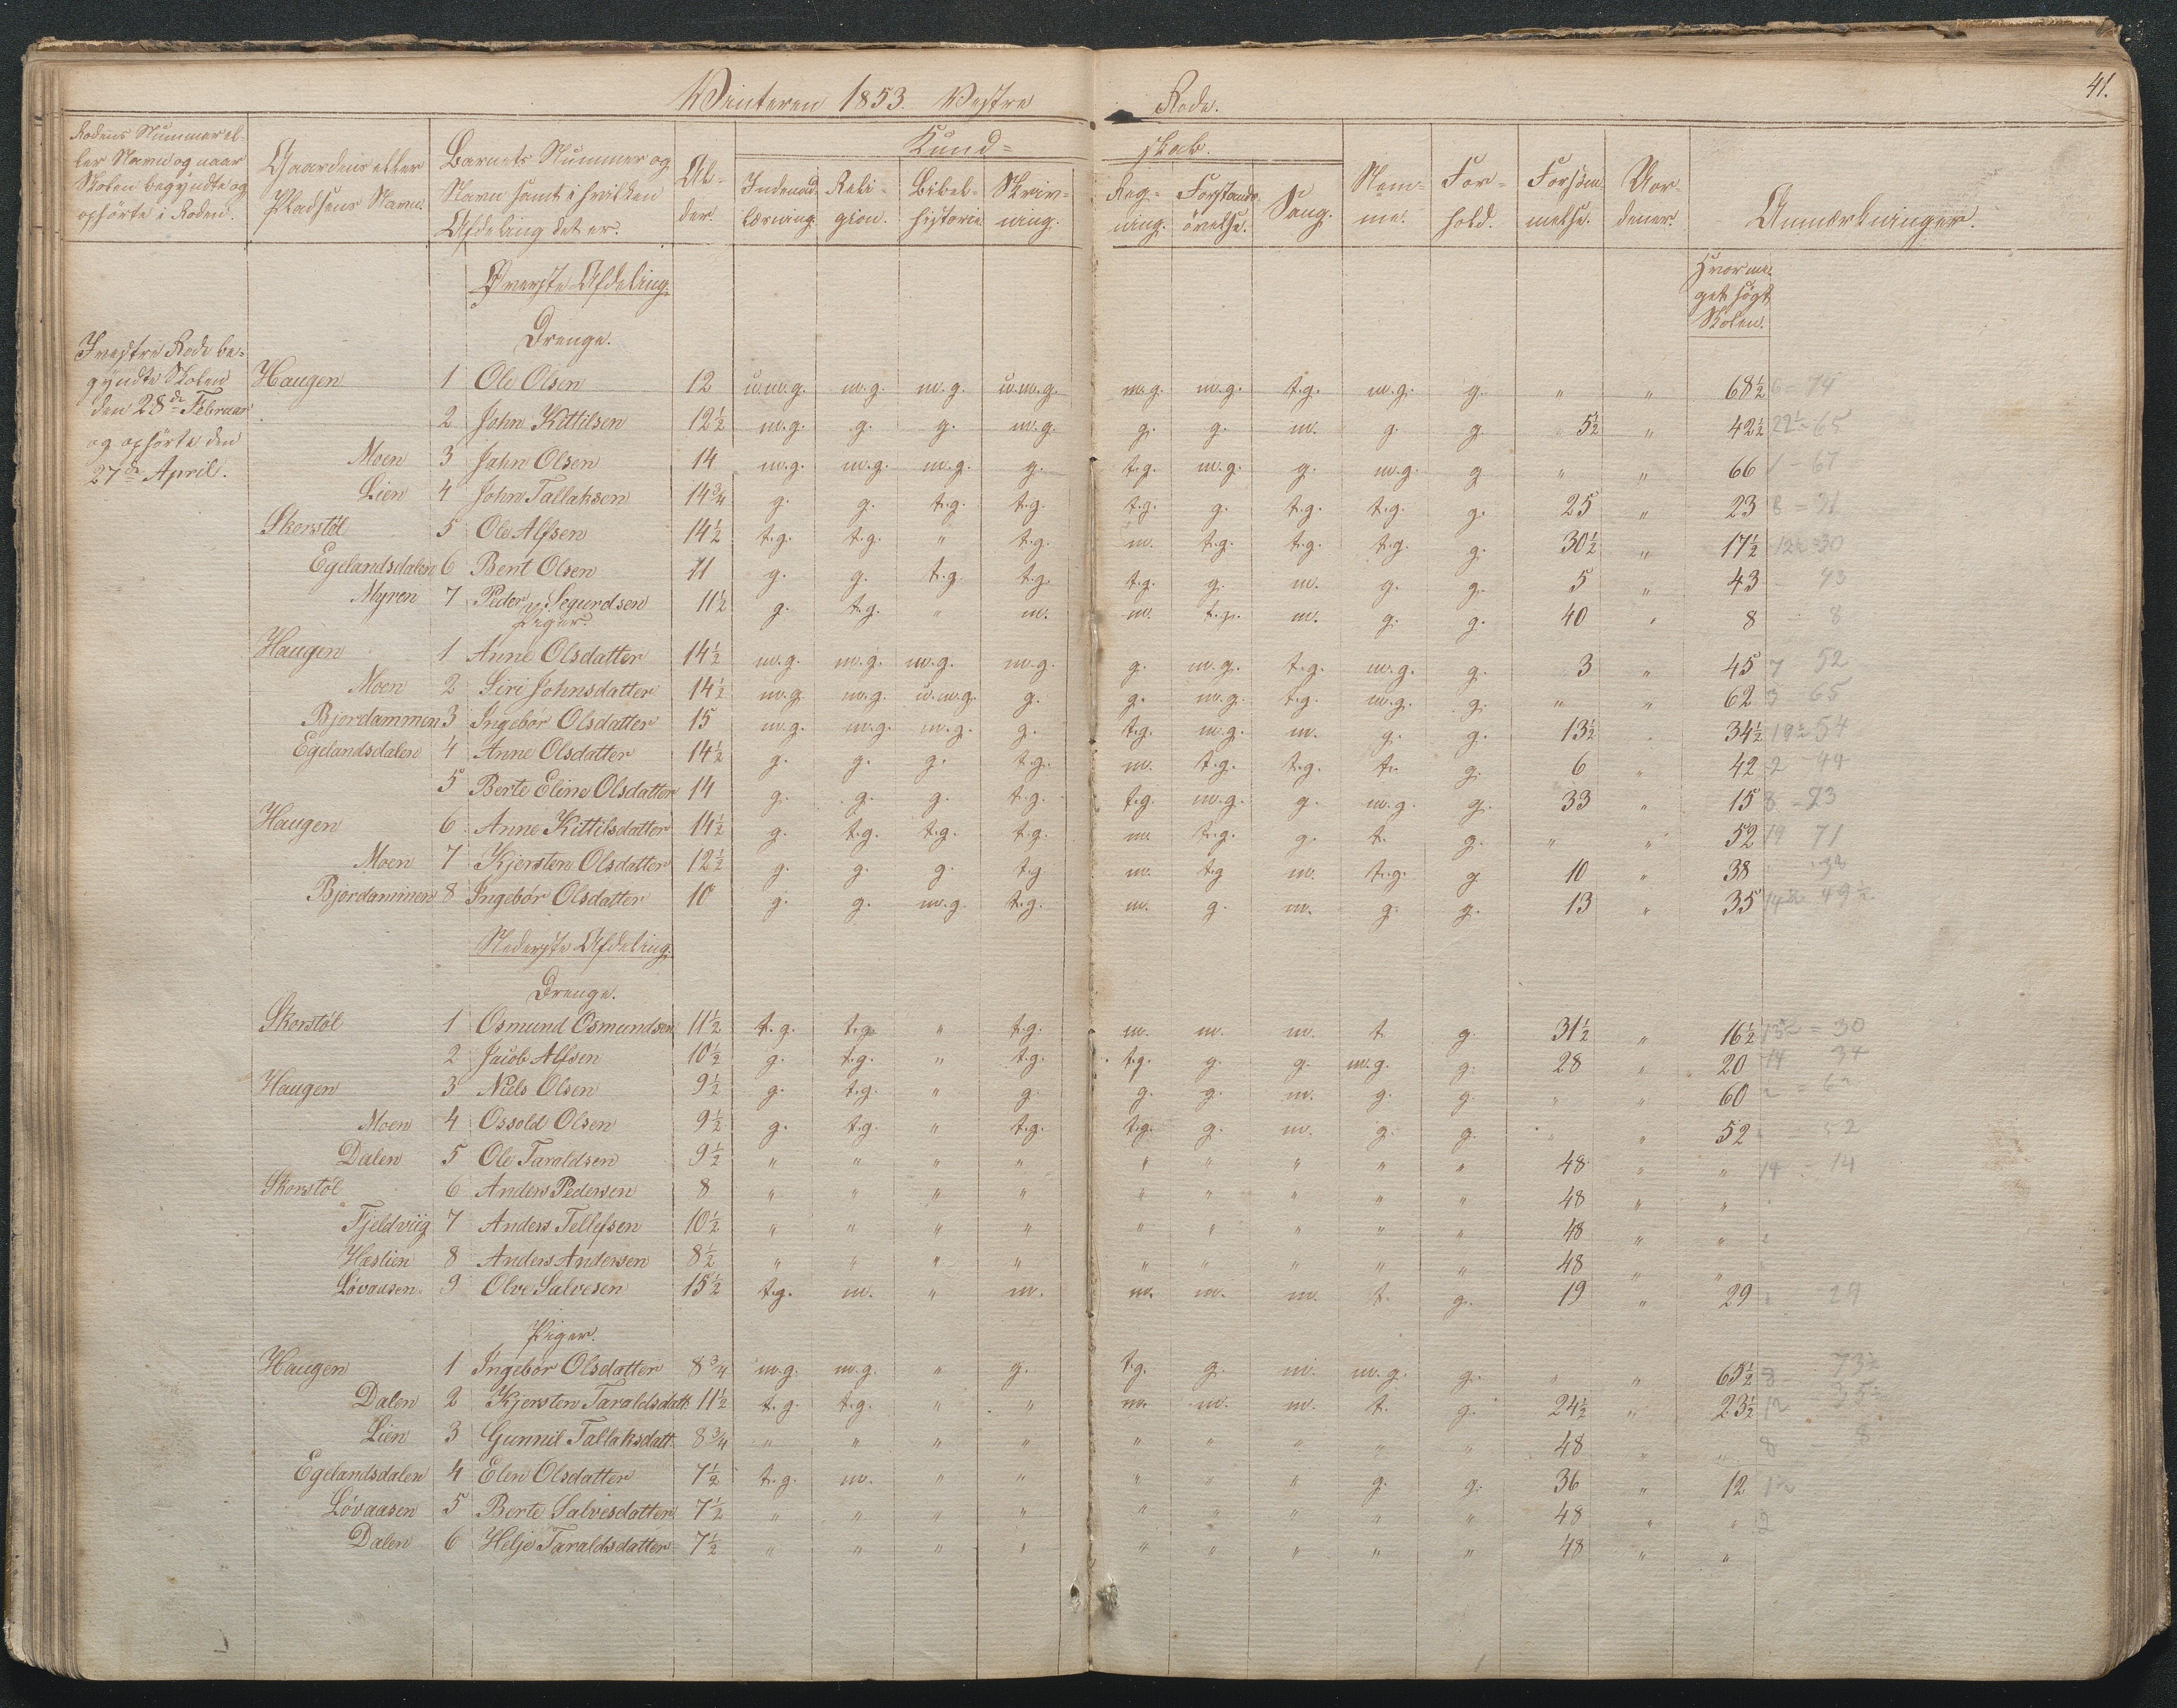 41.
Winteren 1853. Vestre Rode.
Rodens Nummer el-
ler Navn og naar
Skolen begyndte og
ophörte i Roden.
Gaardens eller
Pladsens Navn.
Barnets Nummer og
Navn samt i hvilken
Afdeling det er.
Al-
der.
Kund=
skab.
Indenad-
læsning.
Reli-
gion.
Bibel-
historie.
Skriv-
ning.
Reg-
ning.
Forstands-
övelse.
Sang.
Nem-
me.
For-
hold.
Forsöm-
melse.
Vor-
dener.
Anmærkninger.
Hvor me-
get søgt
Skolen.
Øverste Afdeling.
Drenge.
I vestre Rode be-
gyndte Skolen
den 28de Februar
og ophörte den
27de April.
Haugen 1 Ole Olsen 12 u.m.g. m.g. m.g. u.m.g. m.g. m.g. t.g. m.g. g. " " 68½ 6 - 74
2 John Kittilsen 12½ m.g. g. g. m.g. g. g. m. g. g. 5½ " 42½ 22½ - 65
Moen 3 John Olsen 14 m.g. m.g. m.g. g. t.g. m.g. g. m.g. g " " 66 1 - 67
Lien 4 John Tallaksen 14¾ g. g. t.g. t.g. t.g. g. t.g. t.g. g. 25 " 23 8 = 31
Skorstöl 5 Ole Alfsen 14½ t.g. t.g. " t.g. m. t.g. t.g. t.g. g. 30½ " 17½ 12½ = 30
Egelandsdalen 6 Bent Olsen 11 g. g. t.g. t.g. t.g. g. m. g. g. 5 " 43 - 43
Myren 7 Peder Segurdsen 11½ g. t.g. " m. m. t.g. m. g. g. 40 " 8 - 8
Piger.
Haugen 1 Anne Olsdatter 14½ m.g. m.g. m.g. m.g. g. m.g. t.g. m.g. g. 3 " 45 7 52
Moen 2 Siri Johnsdatter 14½ m.g. m.g. u.m.g. g. g. m.g. t.g. m.g. g. " " 62 3 65
Bjordammen 3 Ingebör Olsdatter 15 m.g. m.g. m.g. g. t.g. m.g. m. g. g. 13½ " 34½ 19½ 54
Egelandsdalen 4 Anne Olsdatter 14½ g. g. g. t.g. m. t.g. t.g. t. g. 6 " 42 2 - 44
5 Berte Eline Olsdatter 14 g. g. g. t.g. t.g. m.g. g. m.g. g. 33 " 15 8 - 23
Haugen 6 Anne Kittilsdatter 14½ g. t.g. t.g. t.g. m. t.g. g. t. g. " " 52 19 71
Moen 7 Kjersten Olsdatter 12½ g. g. g. t.g m. t.g m. t.g. g 10 " 38 38
Bjordammen 8 Ingebör Olsdatter 10 g. g. m.g. t.g. m. g. m. g. g. 13 " 35 14½ 49½
Nederste Afdeling.
Drenge.
Skorstöl 1 Osmund Osmundsen 11½ t.g. t.g. " t.g. m. m. m. t. g. 31½ " 16½ 13½ = 30
2 Jacob Alfsen 10½ g. t.g. " t.g. t.g. g. g. m.g. g. 28 " 20 14 34
Haugen 3 Niels Olsen 9½ g. t.g. " g. g. g. m. g. g. " " 60 2 = 62
Moen 4 Ossold Olsen 9½ g. t.g. " t.g. t.g. g. m. g. g. " " 52 52
Dalen 5 Ole Taraldsen 9½ " " " " " " " " " 48 " " 14 - 14
Skorstöl 6 Anders Pedersen 8 " " " " " " " " " 48 " "
Fjeldviig 7 Anders Tellefsen 10½ " " " " " " " " " 48 " "
Hæslien 8 Anders Andersen 8½ " " " " " " " " " 48 " "
Lövaasen 9 Olve Salvesen 15½ t.g. m. " m. m. m. m. t. g. 19 " 29 29
Piger.
Haugen 1 Ingebör Olsdatter 8¾ m.g. m.g. " g. t.g. g. m. m.g. g. " " 65½ 8 73½
Dalen 2 Kjersten Taraldsdatt. 11½ t.g. t.g. " " m. m. m. t. g. 24½ " 23½ 12 35½
Lien 3 Gunnil Tallaksdatt. 8¾ " " " " " " " " " 48 " " 8 8
Egelandsdalen 4 Elen Olsdatter 7½ t.g. m. " " " " " g. g. 36 " 12 12
Lövaasen 5 Berte Salvesdatter 7½ " " " " " " " " " 48 " " 2
Dalen 6 Helje Taraldsdatter 7½ " " " " " " " " " 48 " "